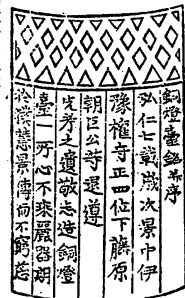 銅燈臺銘并序
弘仁七載歳次景申伊
豫權守正四位下藤原
朝臣公等追遵
先考之遺敬志造銅燈
臺一所心不乖麗器期
於撲慧景傳而不窮